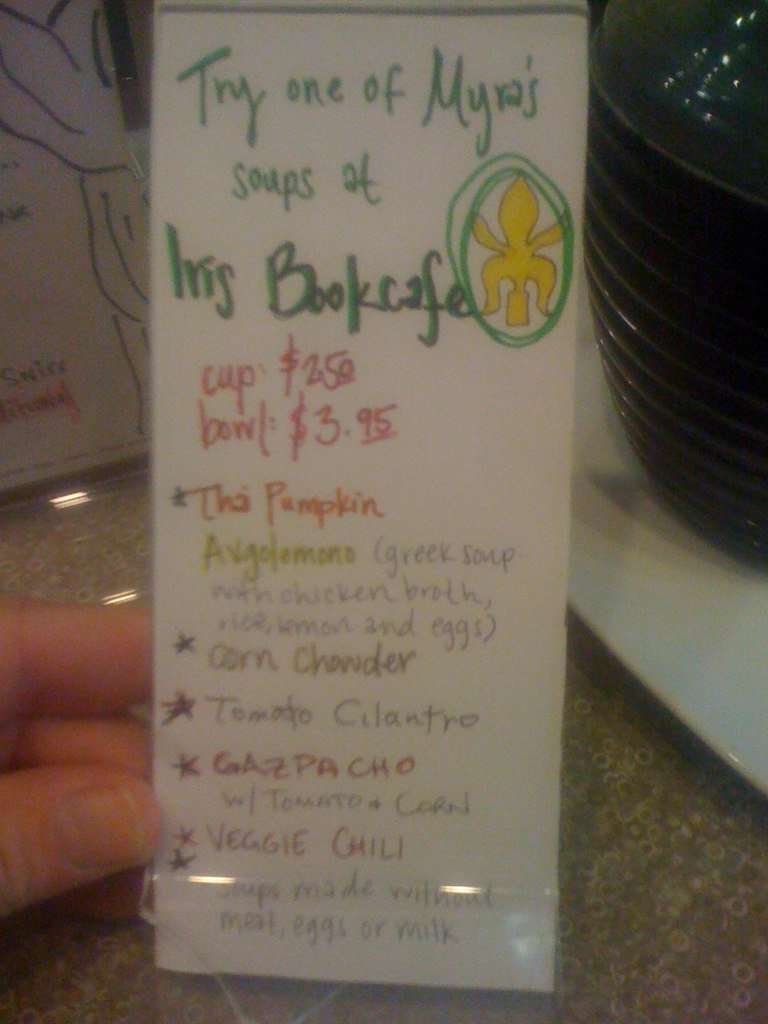 Try one of Myra's
soups at
Iris Bookcafe
cup: $2.50
bowl: $3.95
* Thai Pumpkin
Avgolemono (greek soup
with chicken broth,
rice, lemon and eggs)
* Corn Chowder
* Tomato Cilantro
* GAZPACHO
w/ TOMATO + CORN
* VEGGIE CHILI
* soups made without
meat, eggs or milk